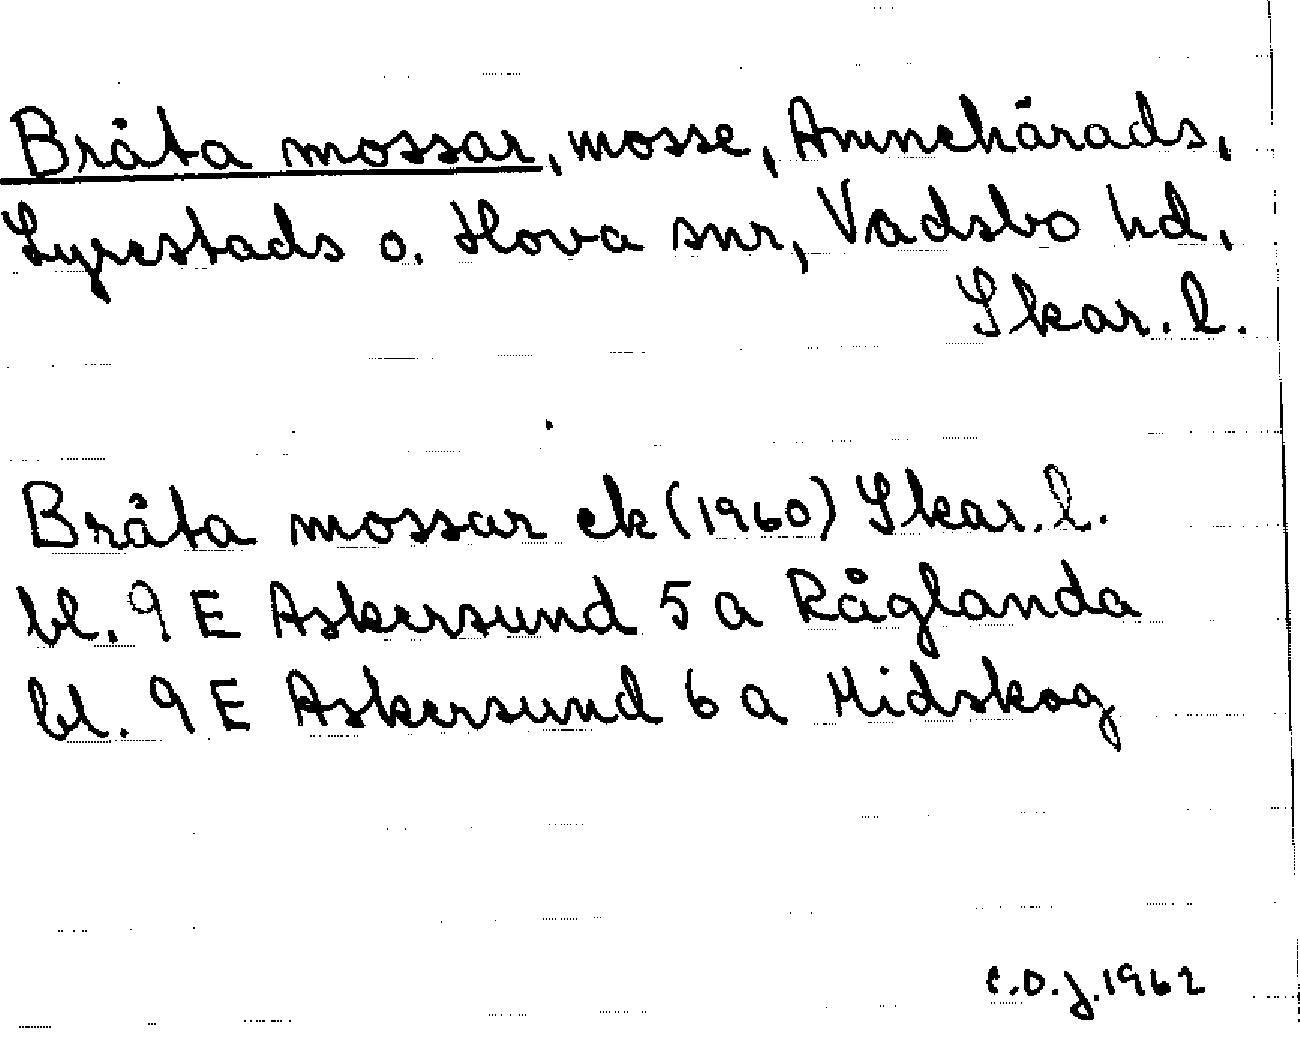 Bråta mossar, mosse, Amnehärads,
Lyrestads o. Hova snr, Vadsbo hd,
Skar. l.
Bråta mossar ek (1960) Skar. l.
bl. 9 E Askersund 5 a Råglanda
bl. 9 E Askersund 6 a Midskog
C.O.J. 1962